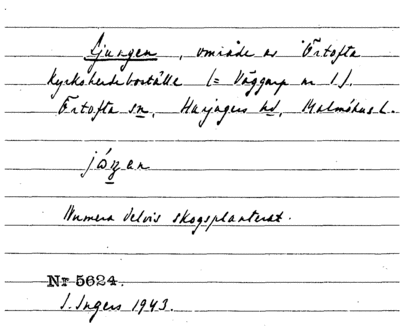 Ljungen, område av Örtofta
kyrkoherdeboställe (= Väggarp nr 1).
Örtofta sn, Harjagers hd, Malmöhus l.
Numera delvis skogsplanterat.
Nr 5624.
I. Ingers 1943.